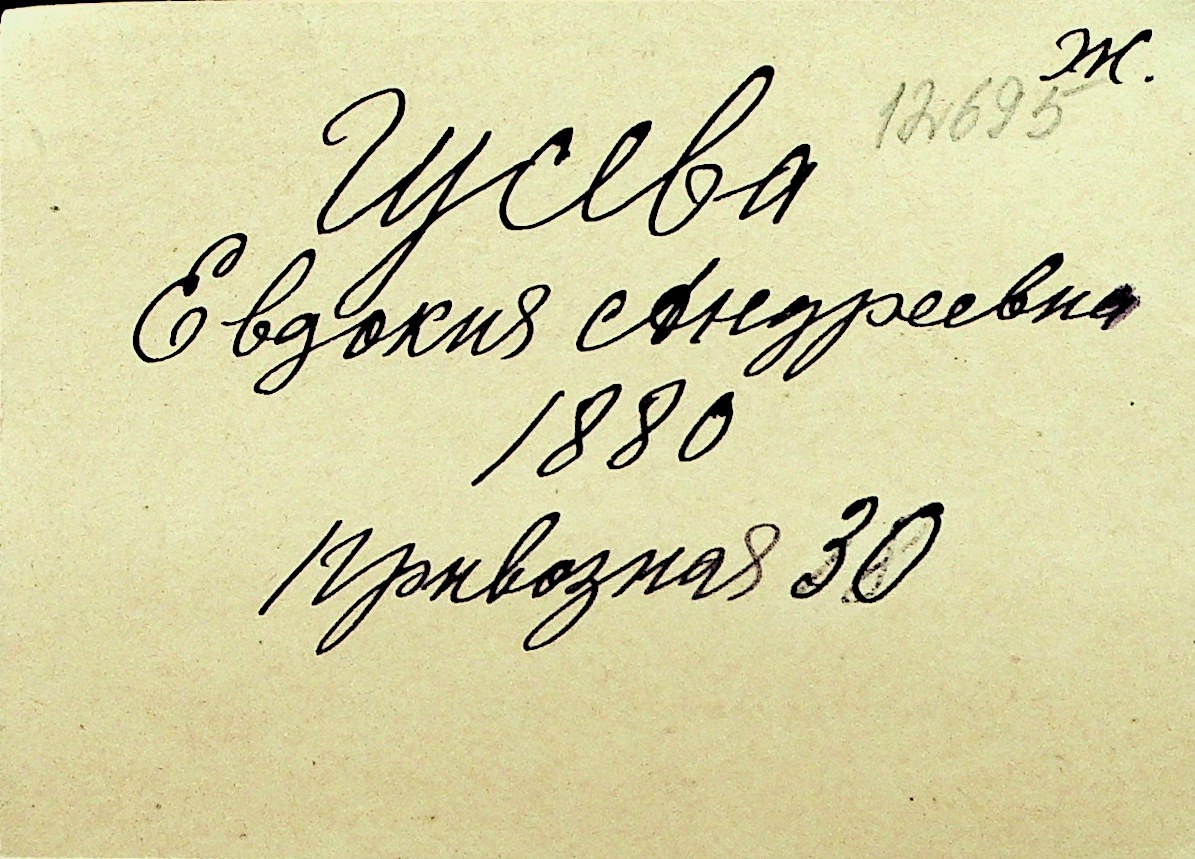 ж.
12695
Гусева
Евдокия Андреевна
1880
Привозная 30